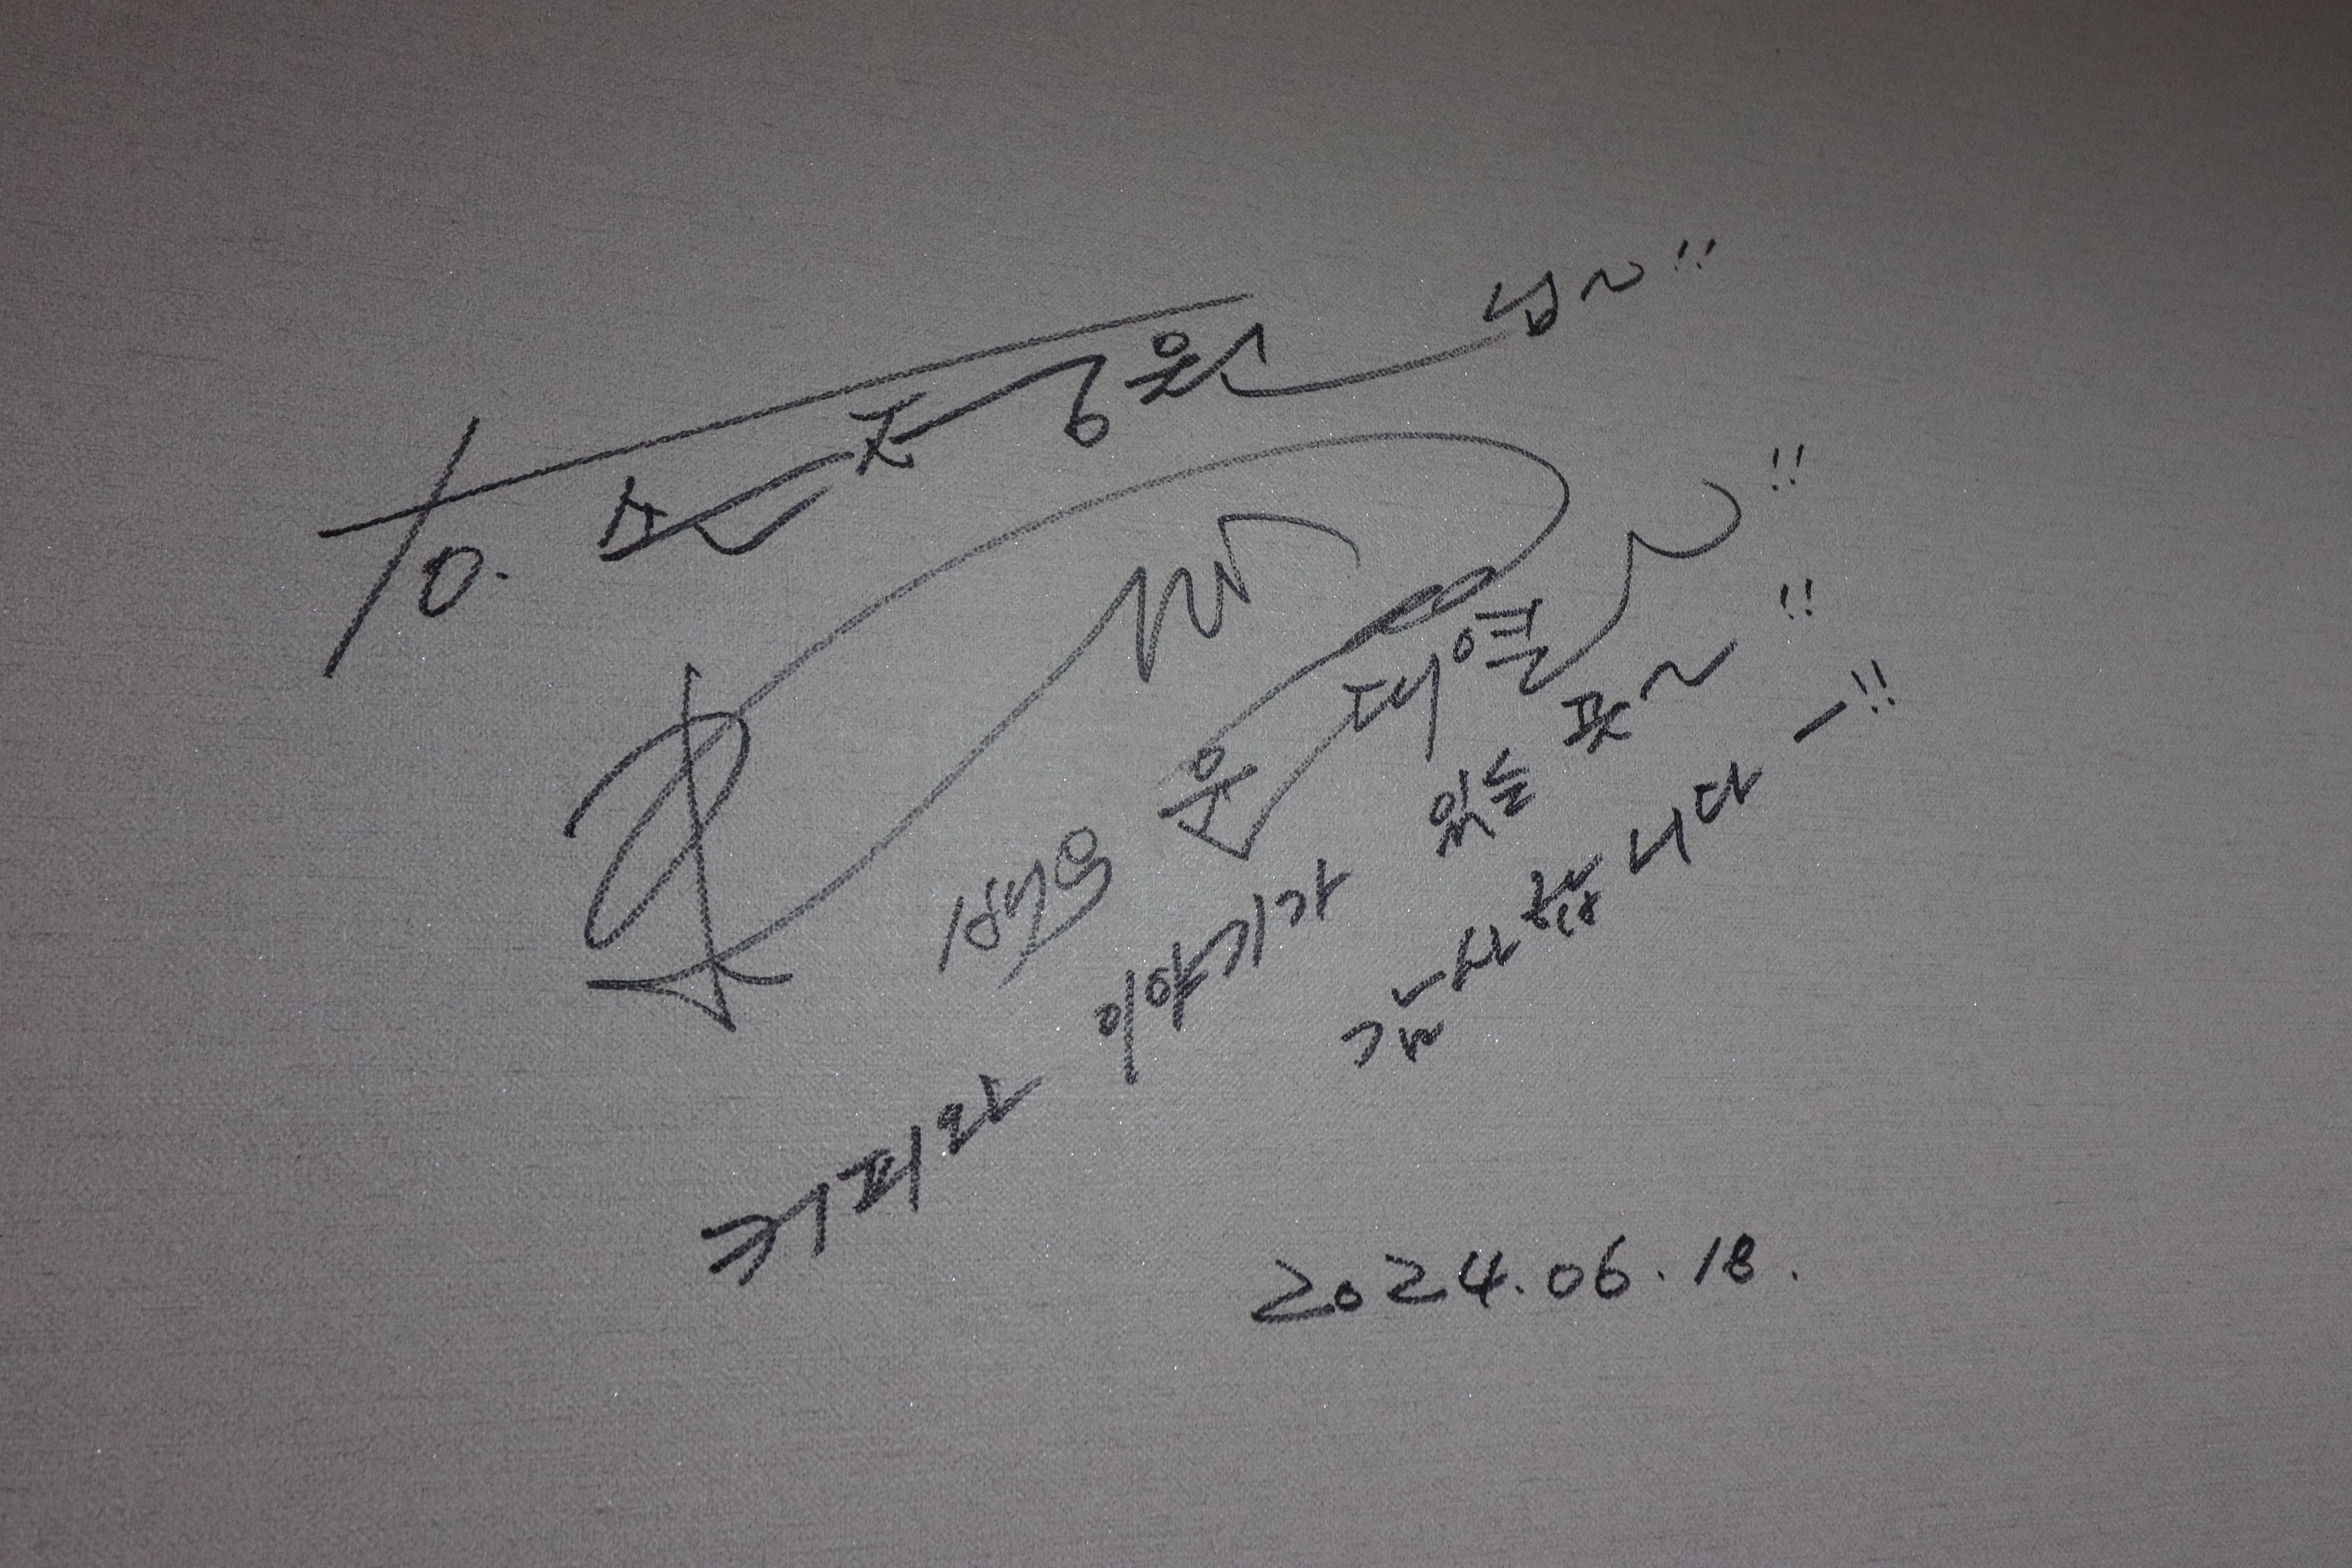 to. 손정원 님~!!
배우 윤대열~!!
커피와 이야기가 있는 곳~!!
감사합니다-!!
2024.06.18.